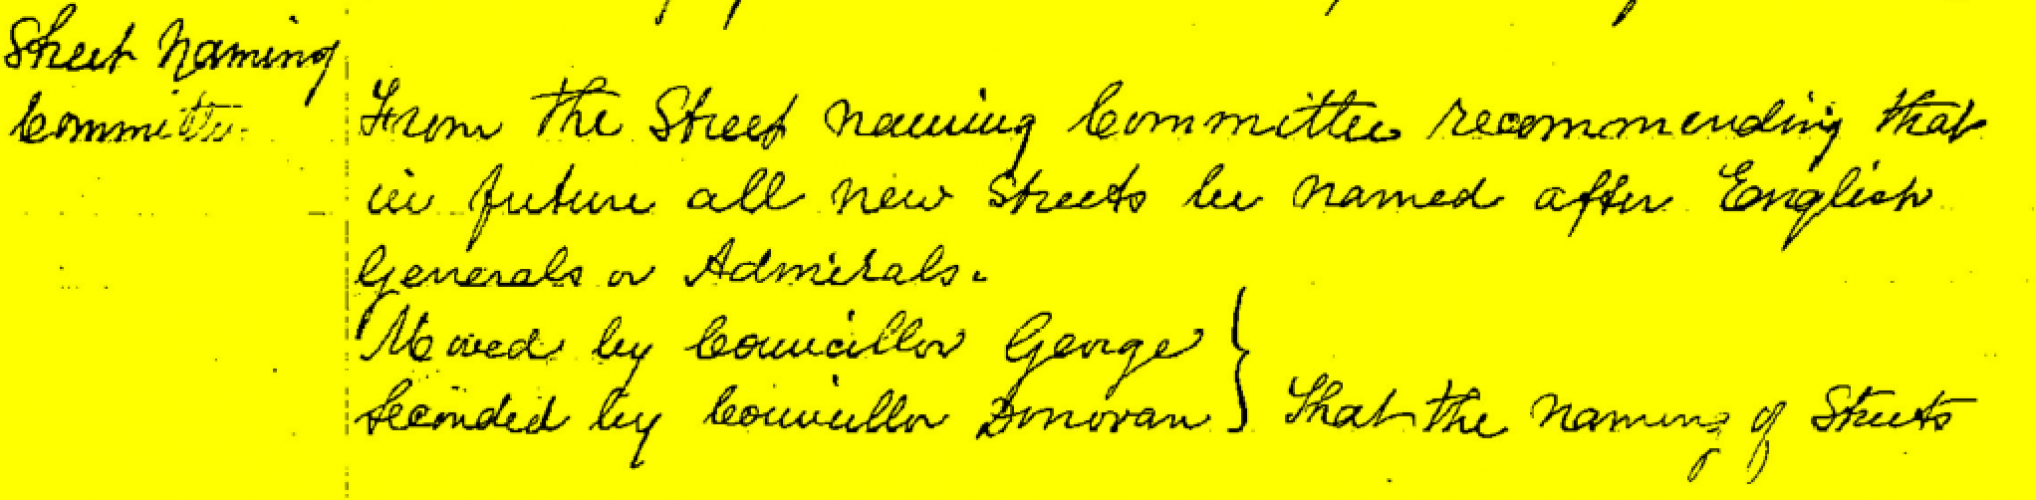 Street Naming
Committee
From the Street naming Committee recommending that
in future all new Streets be named after English
Generals or Admirals.
Moved by Councillor George
Seconded by Councillor Donovan } That the naming of Streets